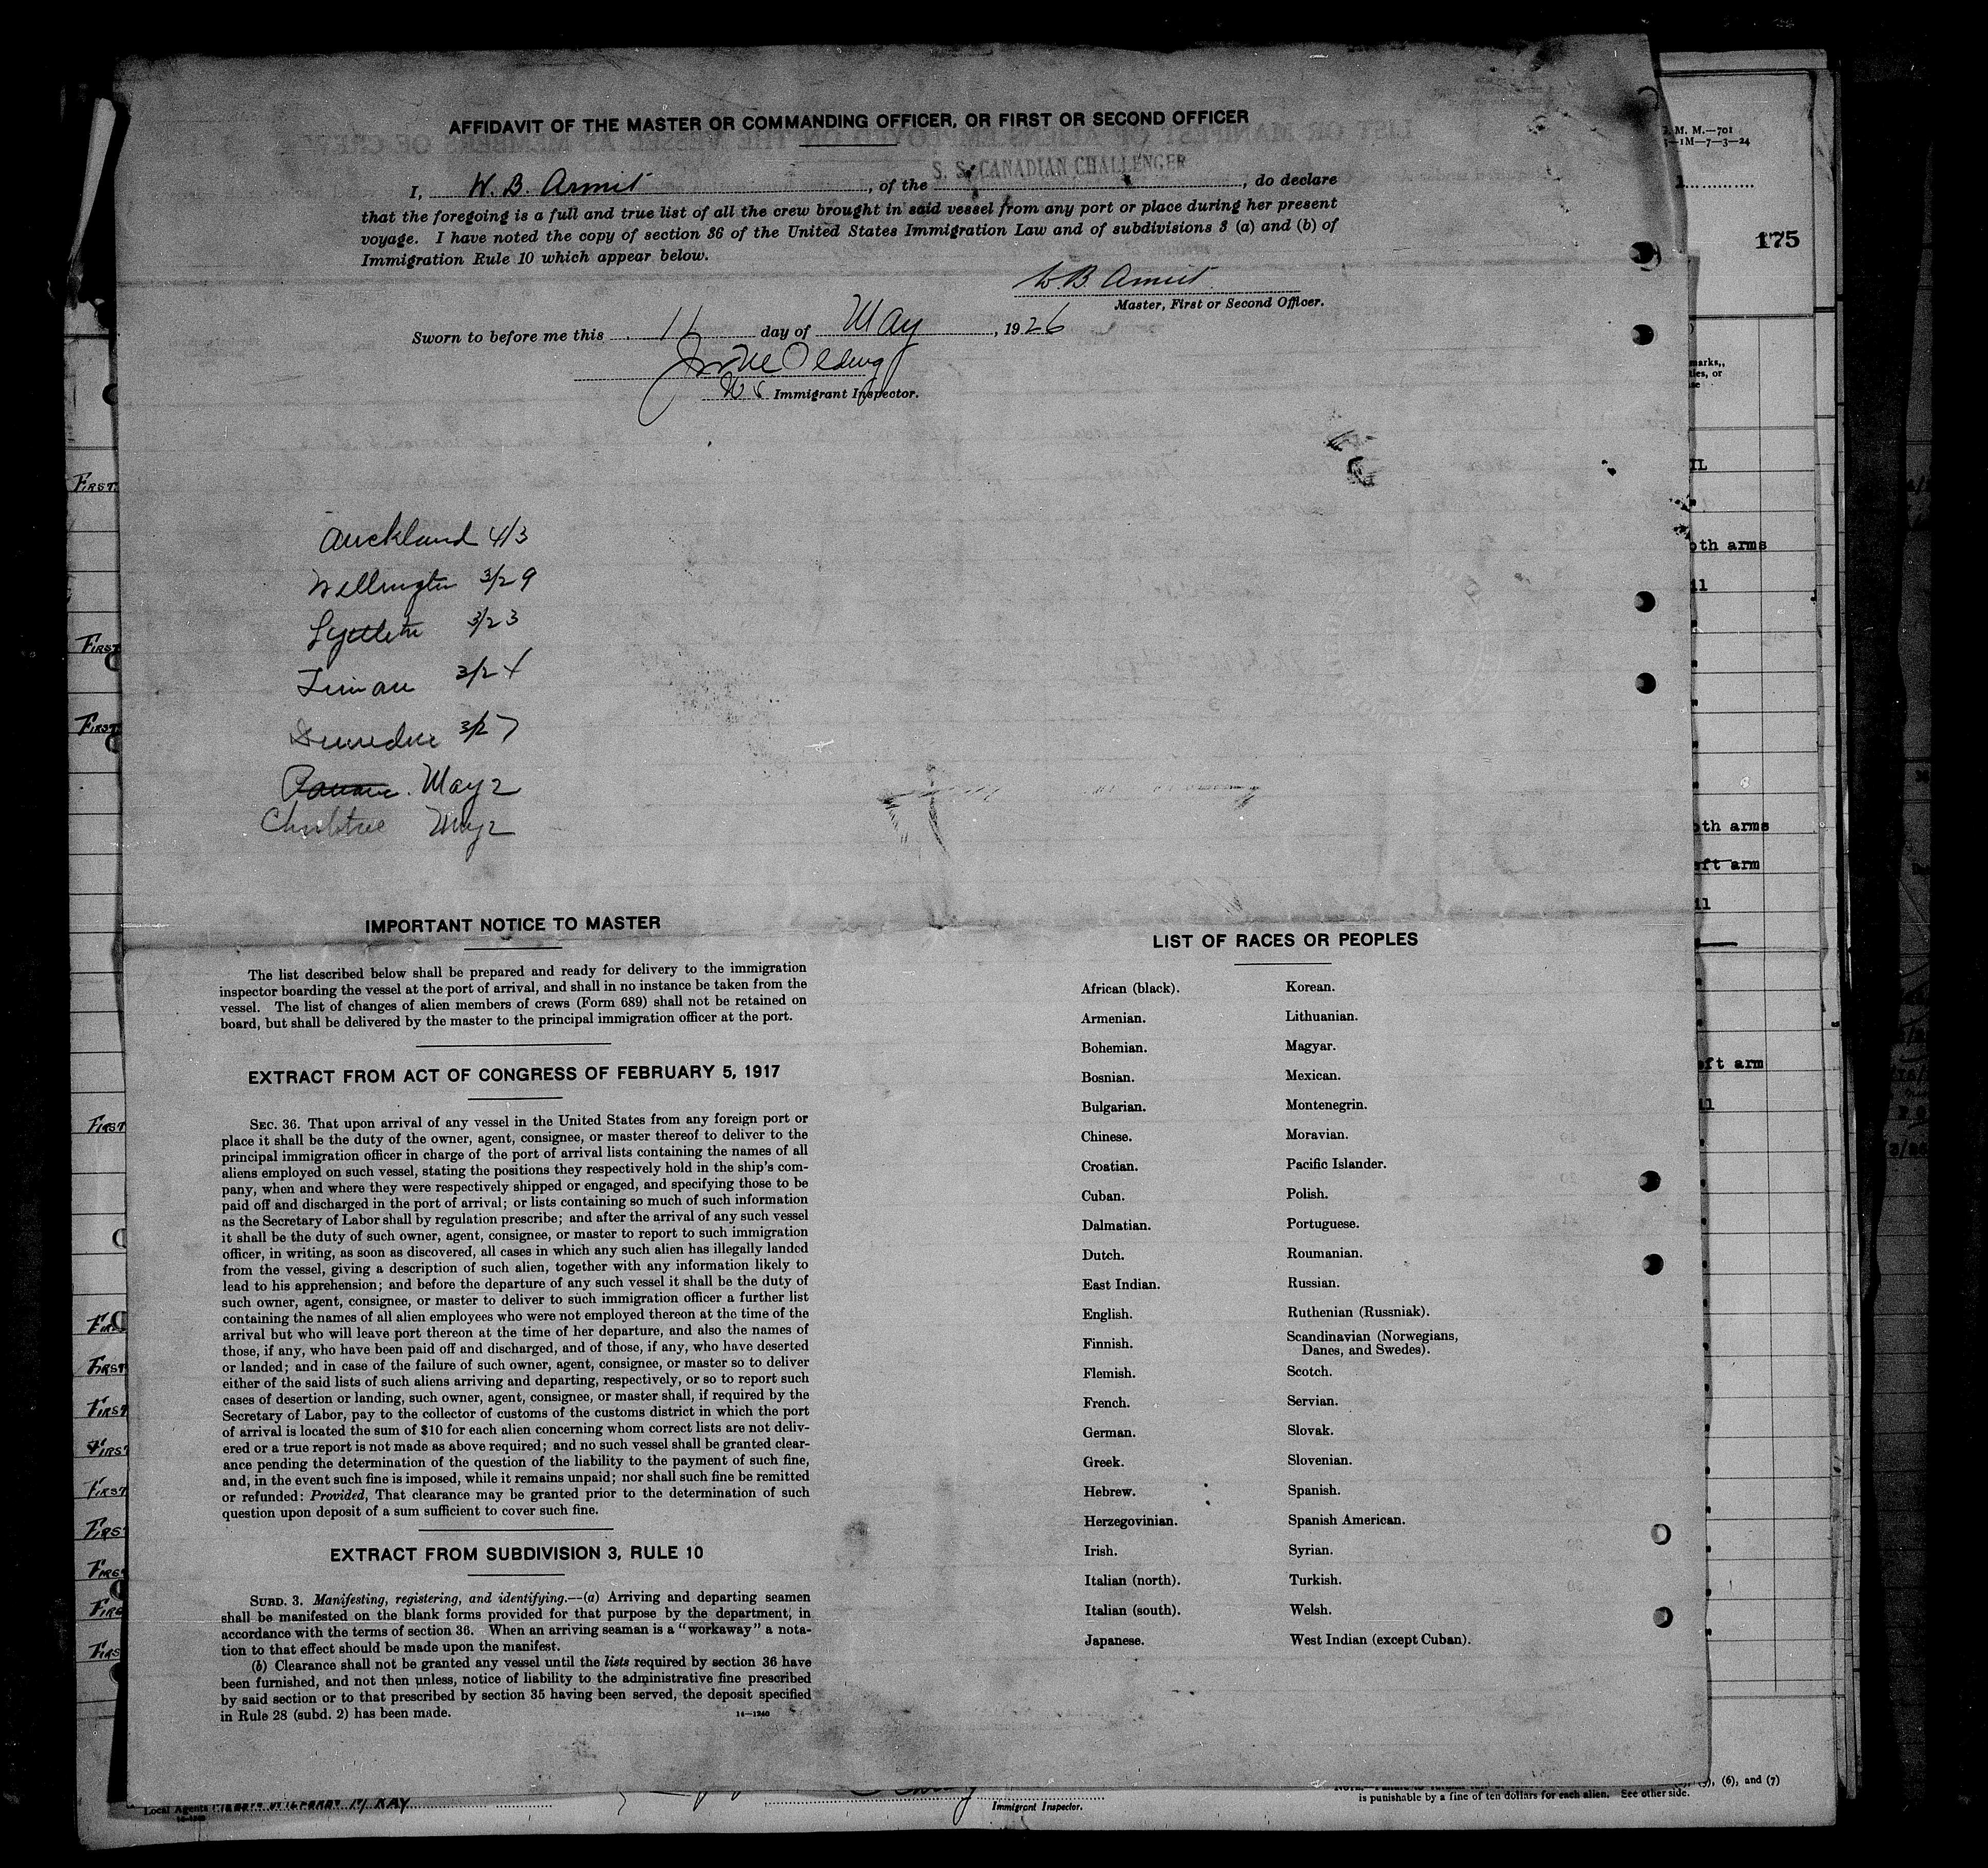 AFFIDAVIT OF THE MASTER OR COMMANDING OFFICER, OR FIRST OR SECOND OFFICER
S. S. CANADIAN CHALLENGER
I, W. B. Armit, of the , do declare
that the foregoing is a full and true list of all the crew brought in said vessel from any port or place during her present
voyage. I have noted the copy of section 36 of the United States Immigration Law and of subdivisions 3 (a) and (b) of
Immigration Rule 10 which appear below.
W. B. Armit
Master, First or Second Officer.
Sworn to before me this day of May, 1926
Immigrant Inspector.
Auckland 4/3
Wellington 3/29
3/23
3/24
Dunedin 3/27
May 2
May 2
IMPORTANT NOTICE TO MASTER
The list described below shall be prepared and ready for delivery to the immigration
inspector boarding the vessel at the port of arrival, and shall in no instance be taken from the
vessel. The list of changes of alien members of crews (Form 689) shall not be retained on
board, but shall be delivered by the master to the principal immigration officer at the port.
EXTRACT FROM ACT OF CONGRESS OF FEBRUARY 5, 1917
SEC. 36. That upon arrival of any vessel in the United States from any foreign port or
place it shall be the duty of the owner, agent, consignee, or master thereof to deliver to the
principal immigration officer in charge of the port of arrival lists containing the names of all
aliens employed on such vessel, stating the positions they respectively hold in the ship's com-
pany, when and where they were respectively shipped or engaged, and specifying those to be
paid off and discharged in the port of arrival; or lists containing so much of such information
as the Secretary of Labor shall by regulation prescribe; and after the arrival of any such vessel
it shall be the duty of such owner, agent, consignee, or master to report to such immigration
officer, in writing, as soon as discovered, all cases in which any such alien has illegally landed
from the vessel, giving a description of such alien, together with any information likely to
lead to his apprehension; and before the departure of any such vessel it shall be the duty of
such owner, agent, consignee, or master to deliver to such immigration officer a further list
containing the names of all alien employees who were not employed thereon at the time of the
arrival but who will leave port thereon at the time of her departure, and also the names of
those, if any, who have been paid off and discharged, and of those, if any, who have deserted
or landed; and in case of the failure of such owner, agent, consignee, or master so to deliver
either of the said lists of such aliens arriving and departing, respectively, or so to report such
cases of desertion or landing, such owner, agent, consignee, or master shall, if required by the
Secretary of Labor, pay to the collector of customs of the customs district in which the port
of arrival is located the sum of $10 for each alien concerning whom correct lists are not deliv-
ered or a true report is not made as above required; and no such vessel shall be granted clear-
ance pending the determination of the question of the liability to the payment of such fine,
and, in the event such fine is imposed, while it remains unpaid; nor shall such fine be remitted
or refunded: Provided, That clearance may be granted prior to the determination of such
question upon deposit of a sum sufficient to cover such fine.
EXTRACT FROM SUBDIVISION 3, RULE 10
SUBD. 3. Manifesting, registering, and identifying.—(a) Arriving and departing seamen
shall be manifested on the blank forms provided for that purpose by the department, in
accordance with the terms of section 36. When an arriving seaman is a "workaway" a nota-
tion to that effect should be made upon the manifest.
(b) Clearance shall not be granted any vessel until the lists required by section 36 have
been furnished, and not then unless, notice of liability to the administrative fine prescribed
by said section or to that prescribed by section 35 having been served, the deposit specified
in Rule 28 (subd. 2) has been made.
14—1240
LIST OF RACES OR PEOPLES
African (black).
Armenian.
Bohemian.
Bosnian.
Bulgarian.
Chinese.
Croatian.
Cuban.
Dalmatian.
Dutch.
East Indian.
English.
Finnish.
Flemish.
French.
German.
Greek.
Hebrew.
Herzegovinian.
Irish.
Italian (north).
Italian (south).
Japanese.
Korean.
Lithuanian.
Magyar.
Mexican.
Montenegrin.
Moravian.
Pacific Islander.
Polish.
Portuguese.
Roumanian.
Russian.
Ruthenian (Russniak).
Scandinavian (Norwegians,
Danes, and Swedes).
Scotch.
Servian.
Slovak.
Slovenian.
Spanish.
Spanish American.
Syrian.
Turkish.
Welsh.
West Indian (except Cuban).
M. M.—701
1M—7—3—24
175
arms
arms
arm
arm
FIRST
FIRST
FIRST
FIRST
FIRST
FIRST
FIRST
FIRST
Local Agents
Immigrant Inspector.
(6), and (7)
is punishable by a fine of ten dollars for each alien. See other side.